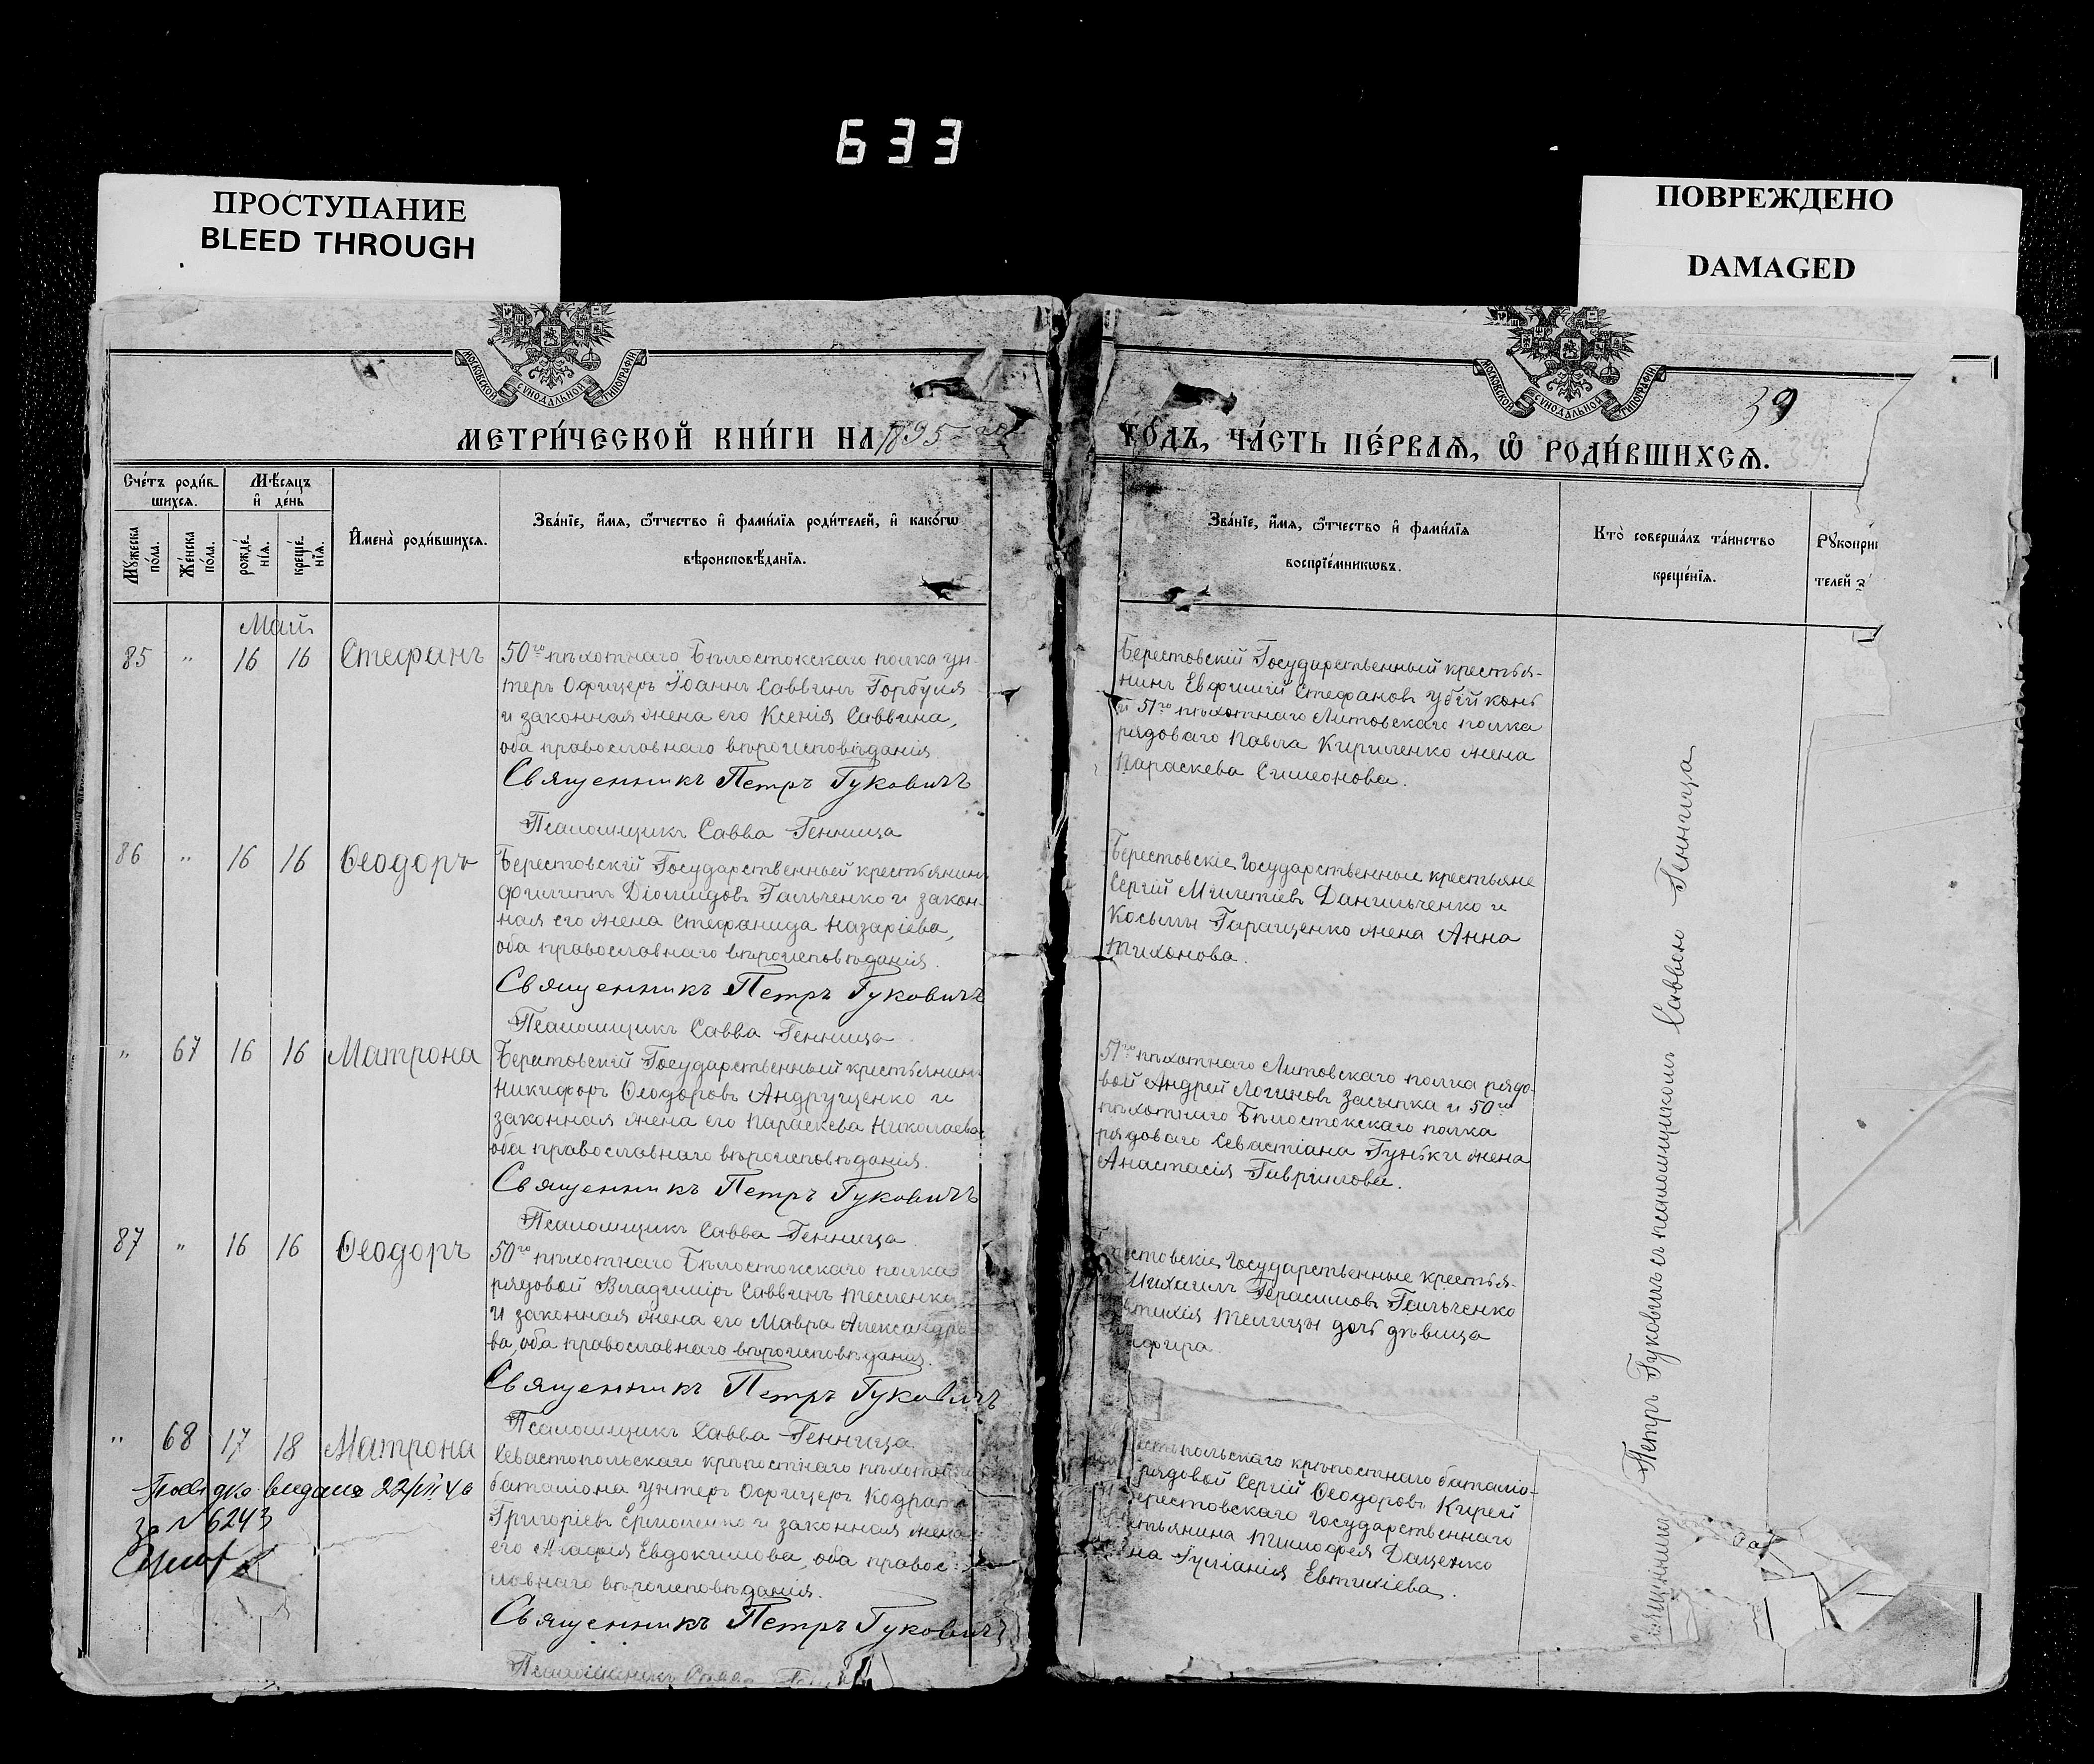 633
ПРОСТУПАНИЕ
BLEED THROUGH
ПОВРЕЖДЕНО
DAMAGED
МОСКОВСКОЙ СУНОДАЛЬНОЙ ТИПОГРАФІИ
МОСКОВСКОЙ СУНОДАЛЬНОЙ ТИПОГРАФІИ
39
МЕТРИ́ЧЕСКОЙ КНИ́ГИ НА 1895 го
ГО́ДЪ, ЧА́СТЬ ПЕ́РВАѦ, Ѡ҆ РОДИ́ВШИХСѦ.
39.
Сче́тъ роди́в-
шихсѧ.
Мѣ́сѧцъ
и҆ де́нь
Мꙋ́жеска
по́ла.
Же́нска
по́ла.
рожде́-
нїѧ.
креще́-
нїѧ.
И҆мена̀ роди́вшихсѧ.
Зва́нїе, и҆́мѧ, ѻ҆́тчество и҆ фами́лїѧ роди́телей, и҆ како́гѡ
вѣроисповѣ́данїѧ.
Зва́нїе, и҆́мѧ, ѻ҆́тчество и҆ фами́лїѧ
воспрїе́мникѡвъ.
Кто̀ соверша́лъ та́инство
креще́нїѧ.
Рꙋкопри
телей з
Май
85 " 16 16 Стефанъ
50го пѣхотнаго Бѣлостокскаго полка ун-
теръ Офицеръ Іоаннъ Саввинъ Горбуля
и законная жена его Ксенія Саввина,
оба православнаго вѣроисповѣданія.
Священникъ Петръ Гуковичъ
Псаломщикъ Савва Генница
Берестовскій Государственный крестья-
нинъ Евфимій Стефановъ Убійконь
и 51го пѣхотнаго Литовскаго полка
рядоваго Павла Кириленко жена
Параскева Симеонова.
86 " 16 16 Ѳеодоръ
Берестовскій Государственный крестьянинъ
Филиппъ Діомидовъ Гальченко и закон-
ная его жена Стефанида Назаріева,
оба православнаго вѣроисповѣданія.
Священникъ Петръ Гуковичъ
Псаломщикъ Савва Генница
Берестовскіе Государственные крестьяне
Сергій Милитіевъ Данильченко и
Косьмы Гаращенко жена Анна
Тихонова.
" 67 16 16 Матрона
Берестовскій Государственный крестьянинъ
Никифоръ Ѳеодоровъ Андрущенко и
законная жена его Параскева Николаева
оба православнаго вѣроисповѣданія.
Священникъ Петръ Гуковичъ
Псаломщикъ Савва Генница
51го пѣхотнаго Литовскаго полка рядо-
вой Андрей Логиновъ Засыпка и 50го
пѣхотнаго Бѣлостокскаго полка
рядоваго Севастіана Гуньки жена
Анастасія Гавріилова.
87 " 16 16 Ѳеодоръ
50го пѣхотнаго Бѣлостокскаго полка
рядовой Владиміръ Саввинъ Тесленко
и законная жена его Мавра Александро-
ва, оба православнаго вѣроисповѣданія.
Священникъ Петръ Гуковичъ
Псаломщикъ Савва Генница
естовскіе Государственные крестья-
Михаилъ Герасимовъ Гальченко
тихія Телицы дочь дѣвица
фира.
" 68 17 18 Матрона
Севастопольскаго крѣпостнаго пѣхотнаго
баталіона Унтеръ Офицеръ Кодратъ
Григоріевъ Ермоленко и законная жена
его Агафія Евдокимова, оба правос-
лавнаго вѣроисповѣданія.
Священникъ Петръ Гуковичъ
Псаломщикъ Савва
стопольскаго крѣпостнаго баталіо-
рядовой Сергій Ѳеодоровъ Кирей
Берестовскаго Государственнаго
стьянина Тимофея Даценко
на Іуліанія Евтихіева.
видана 22/VII 46
за № 6243
Священникъ Петръ Гуковичъ съ псаломщикомъ Саввою Генница